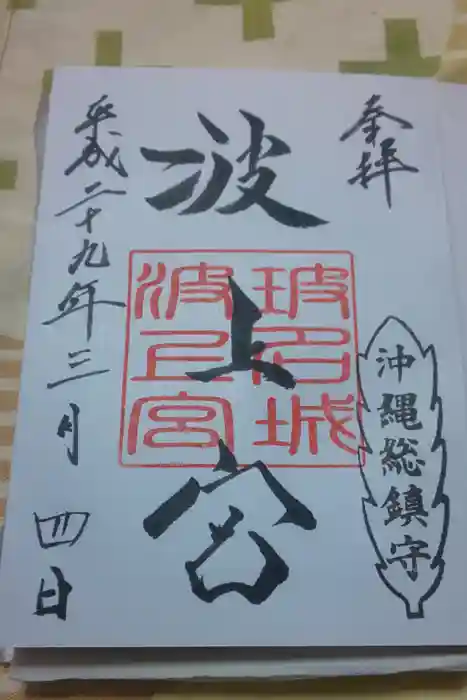 奉拝
波上宮
玻名城
波上宮
沖縄総鎮守
平成二十九年三月四日